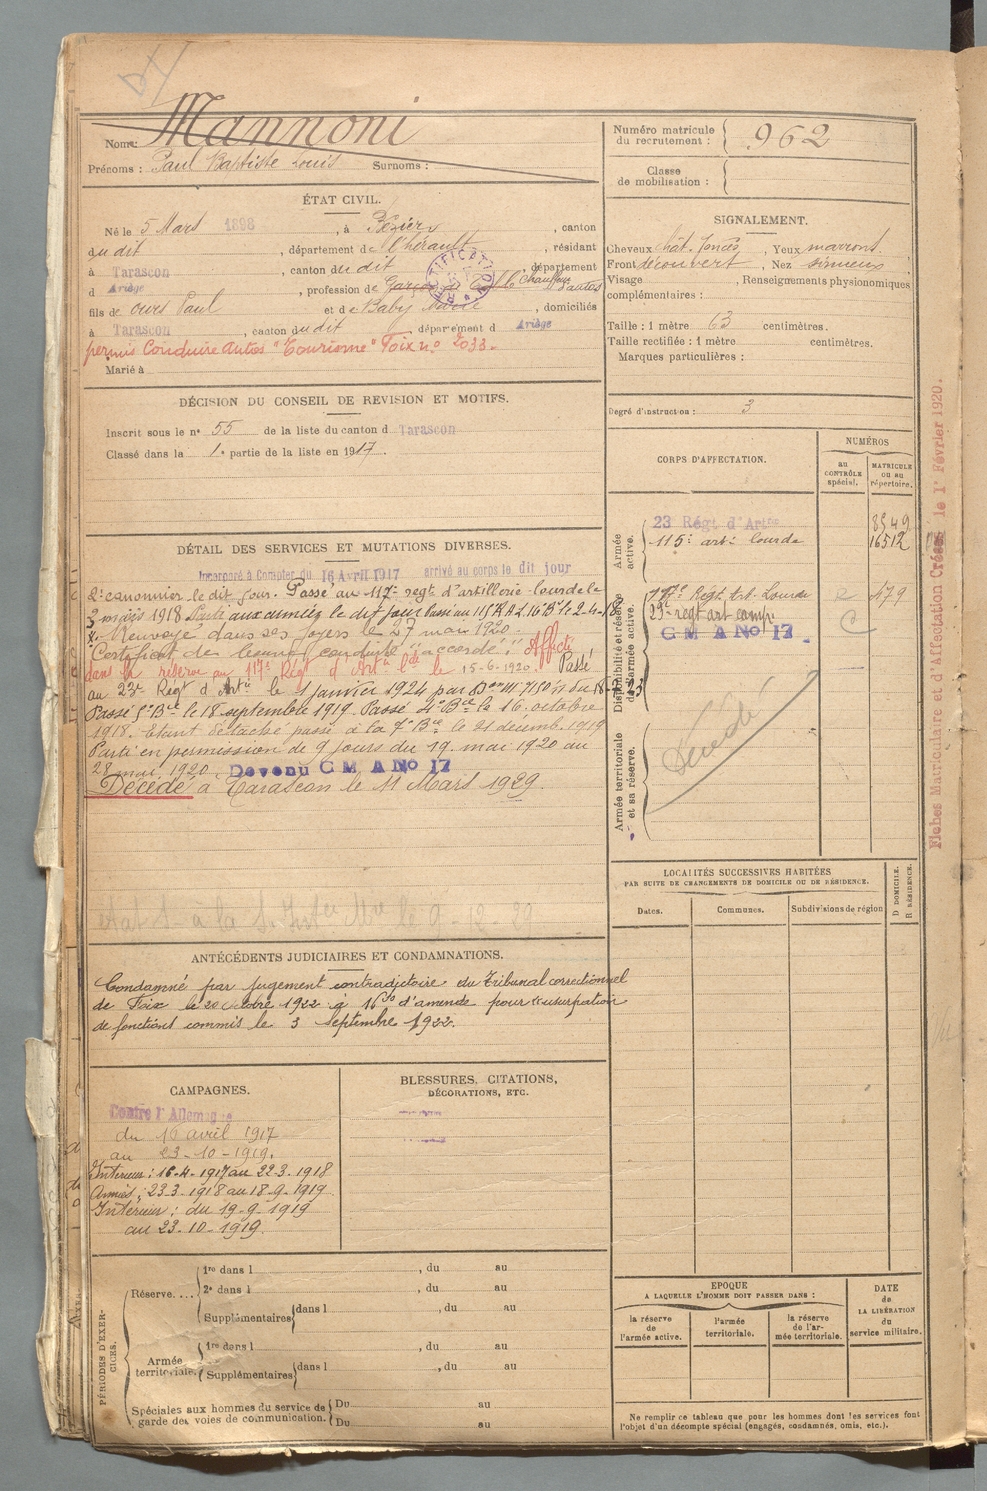 Nom: Mannoni
Prénoms : Paul Baptiste Louis Surnoms :
ÉTAT CIVIL.
Né le 5 Mars 1898, à Béziers, canton
du dit, département de l'hérault, résidant
à Tarascon, canton du dit, département
d Ariège, profession de Garçon de Chauffeur d'autos
fils de Ours Paul et de Baby Marie, domiciliés
à Tarascon, canton du dit, département d Ariège
permis Conduire autos "Tourisme" Foix no 2033.
Marié à
RECTIFICATION
DÉCISION DU CONSEIL DE REVISION ET MOTIFS.
Inscrit sous le no 55 de la liste du canton d Tarascon
Classé dans la 1e partie de la liste en 1917.
DÉTAIL DES SERVICES ET MUTATIONS DIVERSES.
Incorporé à Compter du 16 Avril 1917 arrivé au corps le dit jour
2e canonnier le dit jour. Passé au 117e regt d'artillerie lourde le
3 mars 1918 Parti aux armées le dit jour Passé au 115e R.A.L. 16e Bie le 2-4-18
Renvoyé dans ses foyers le 27 mai 1920.
Certificat de bonne conduite "accordé". Affecté
dans la réserve au 117e Régt d'Artie Lde le 15-6-1920. Passé
au 23e Régt d'Artie le 1 janvier 1924 par Don M. 7150 11 du 18-7-23
Passé 5e Bie le 18 septembre 1919. Passé 4e Bie le 16 octobre
1918. Etant détaché passé à la 7e Bie le 21 décemb. 1919
Parti en permission de 9 jours du 19 mai 1920 au
28 mai 1920. Devenu C M A No 17
Décédé à Tarascon le 11 Mars 1929.
état S à la le 9-12-29
ANTÉCÉDENTS JUDICIAIRES ET CONDAMNATIONS.
Condamné par jugement contradictoire du Tribunal correctionnel
de Foix le 20 octobre 1922 à 16 frs d'amende pour usurpation
de fonctions commis le 3 septembre 1922.
CAMPAGNES.
Contre l'Allemagne
du 16 avril 1917
au 23-10-1919.
Intérieur : 16-4-1917 au 22-3-1918
Armées : 23-3-1918 au 18-9-1919
Intérieur : du 19-9-1919
au 23-10-1919.
BLESSURES, CITATIONS,
DÉCORATIONS, ETC.
PÉRIODES D'EXERCICES.
Réserve....
1re dans l , du au
2e dans l , du au
Supplémentaires dans l , du au
Armée territoriale.
1re dans l , du au
Supplémentaires dans l , du au
Spéciales aux hommes du service de garde des voies de communication.
Du au
Du au
Numéro matricule du recrutement : 962
Classe de mobilisation :
SIGNALEMENT.
Cheveux chât. foncés, Yeux marrons
Front découvert, Nez sinueux
Visage , Renseignements physionomiques
complémentaires :
Taille : 1 mètre 63 centimètres.
Taille rectifiée : 1 mètre centimètres.
Marques particulières :
Degré d'instruction : 3
CORPS D'AFFECTATION.
NUMÉROS
au CONTRÔLE spécial.
MATRICULE ou au répertoire.
Armée active.
23 Régt d'Artie 8549
115e arte lourde 16512
Disponibilité et réserve de l'armée active.
117e Régt Art. Lourde 479
23e regt art camp.
C M A No 17
Armée territoriale et sa réserve.
Décédé
LOCALITÉS SUCCESSIVES HABITÉES
PAR SUITE DE CHANGEMENTS DE DOMICILE OU DE RÉSIDENCE.
Dates.
Communes.
Subdivisions de région
D DOMICILE.
R RÉSIDENCE.
EPOQUE
A LAQUELLE L'HOMME DOIT PASSER DANS :
la réserve de l'armée active.
l'armée territoriale.
la réserve de l'armée territoriale.
DATE de LA LIBÉRATION du service militaire.
Ne remplir ce tableau que pour les hommes dont les services font
l'objet d'un décompte spécial (engagés, condamnés, omis, etc.).
Fiches Matriculaire et d'Affectation Créées le 1r Février 1920.